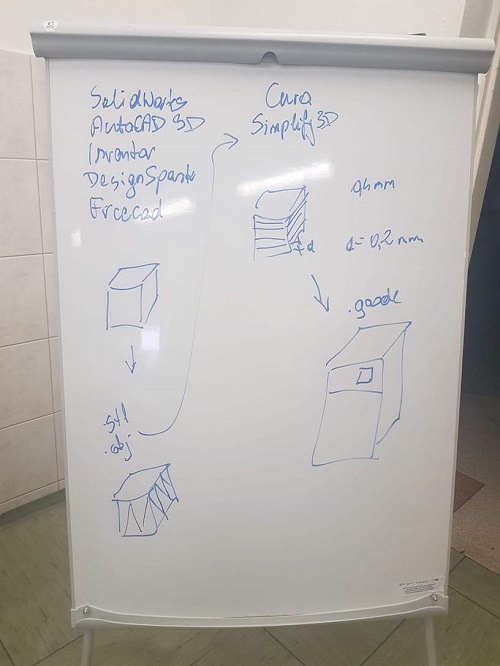 SolidWorks
AutoCAD 3D
Inventor
DesignSpark
Freecad
.stl
.obj
Cura
Simplify3D
d
d=0,2 mm
.gcode